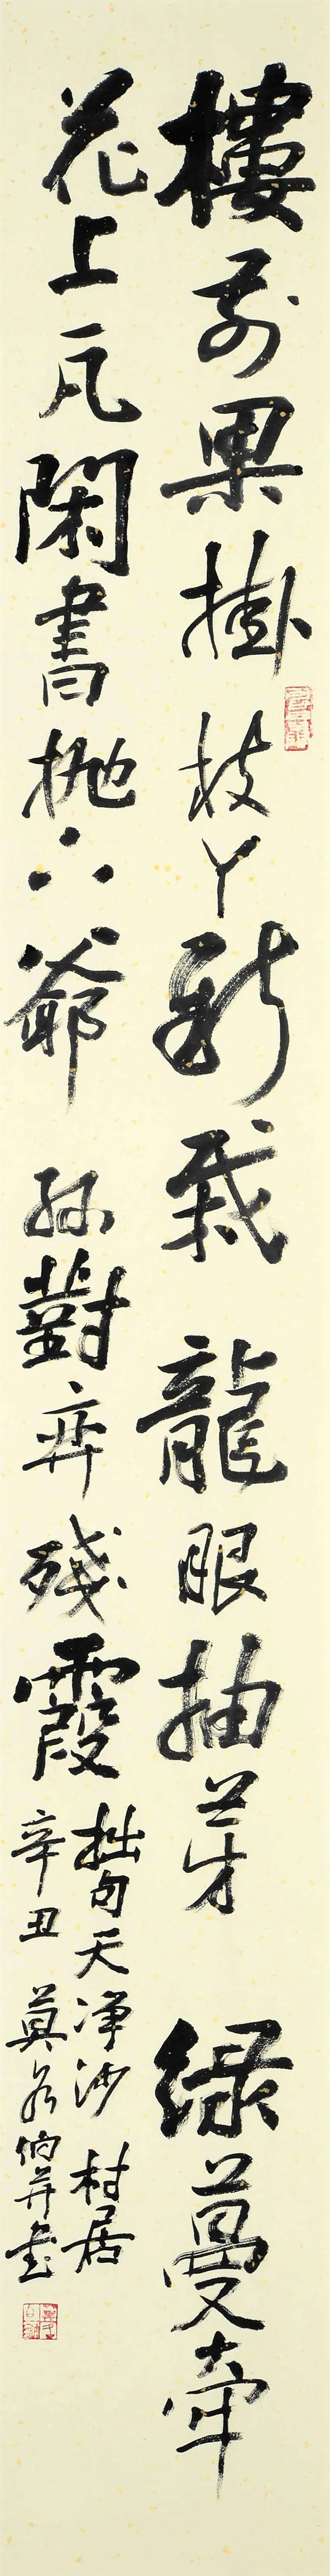 樓前果掛枝丫新栽龍眼抽芽綠蔓牽
花上瓦閑書拋下爺孫對弈殘霞
拙句天淨沙村居
辛丑莫并書